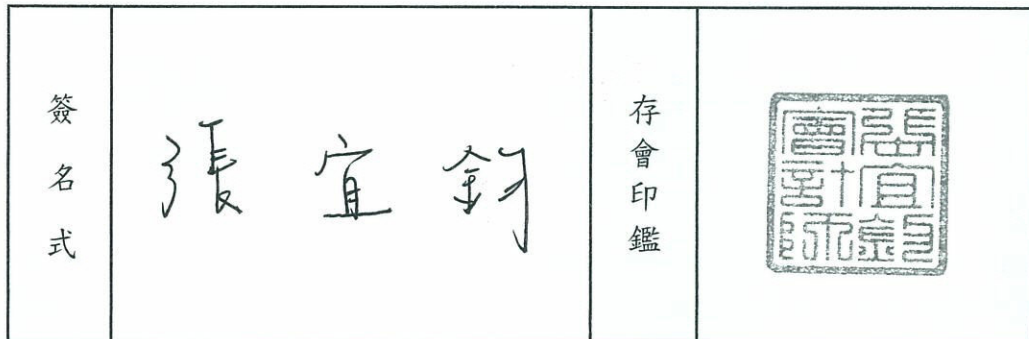 簽名式
張宜鈞
存會印鑑
張宜鈞
會計師